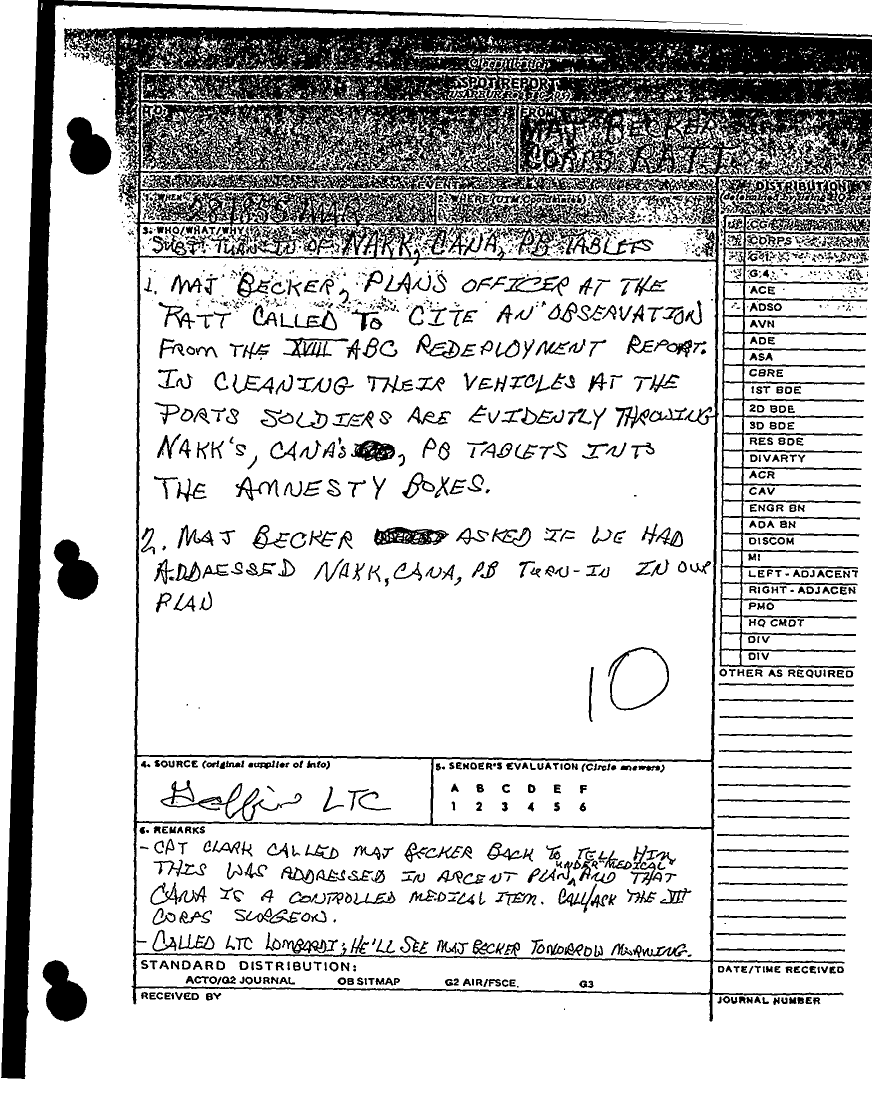 Classification
SPOT REPORT
TO:
FROM:
MAJ BECKER
CORPS RATT
EVENT
1. WHEN
281835 MAR
2. WHERE (UTM Coordinates)
3. WHO/WHAT/WHY:
SUBJ: TURN-IN OF NAKK, CANA, PB TABLETS
1. MAJ BECKER, PLANS OFFICER AT THE
RATT CALLED TO CITE AN OBSERVATION
FROM THE XVIII ABC REDEPLOYMENT REPORT.
IN CLEANING THEIR VEHICLES AT THE
PORTS SOLDIERS ARE EVIDENTLY THROWING
NAKK'S, CANA'S, PB TABLETS INTO
THE AMNESTY BOXES.
2. MAJ BECKER ASKED IF WE HAD
ADDRESSED NAKK, CANA, PB TURN-IN IN OUR
PLAN
10
4. SOURCE (original supplier of info)
LTC
5. SENDER'S EVALUATION (Circle answers)
A B C D E F
1 2 3 4 5 6
6. REMARKS
- CPT CLARK CALLED MAJ BECKER BACK TO TELL HIM
THIS WAS ADDRESSED IN ARCENT PLAN UNDER MEDICAL, AND THAT
CANA IS A CONTROLLED MEDICAL ITEM. CALL/ASK THE VII
CORPS SURGEON.
- CALLED LTC LOMBARDI; HE'LL SEE MAJ BECKER TOMORROW MORNING.
STANDARD DISTRIBUTION:
ACTO/G2 JOURNAL OB SITMAP G2 AIR/FSCE. G3
RECEIVED BY
DISTRIBUTION
CG
CORPS
G-1
G-4
ACE
ADSO
AVN
ADE
ASA
CBRE
1ST BDE
2D BDE
3D BDE
RES BDE
DIVARTY
ACR
CAV
ENGR BN
ADA BN
DISCOM
MI
LEFT - ADJACENT
RIGHT - ADJACEN
PMO
HQ CMDT
DIV
DIV
OTHER AS REQUIRED
DATE/TIME RECEIVED
JOURNAL NUMBER